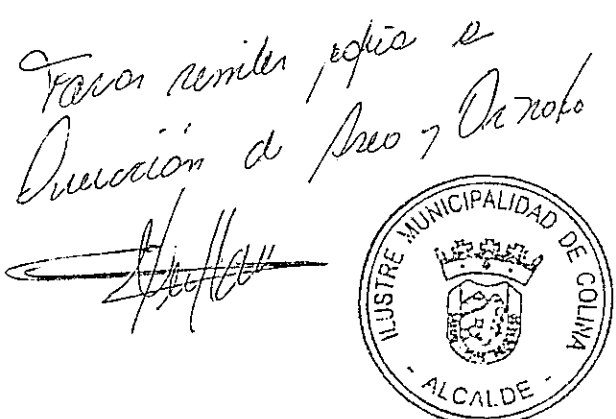 Favor remitir copia a
Dirección de Aseo y Ornato
ILUSTRE MUNICIPALIDAD DE COLINA
- ALCALDE -